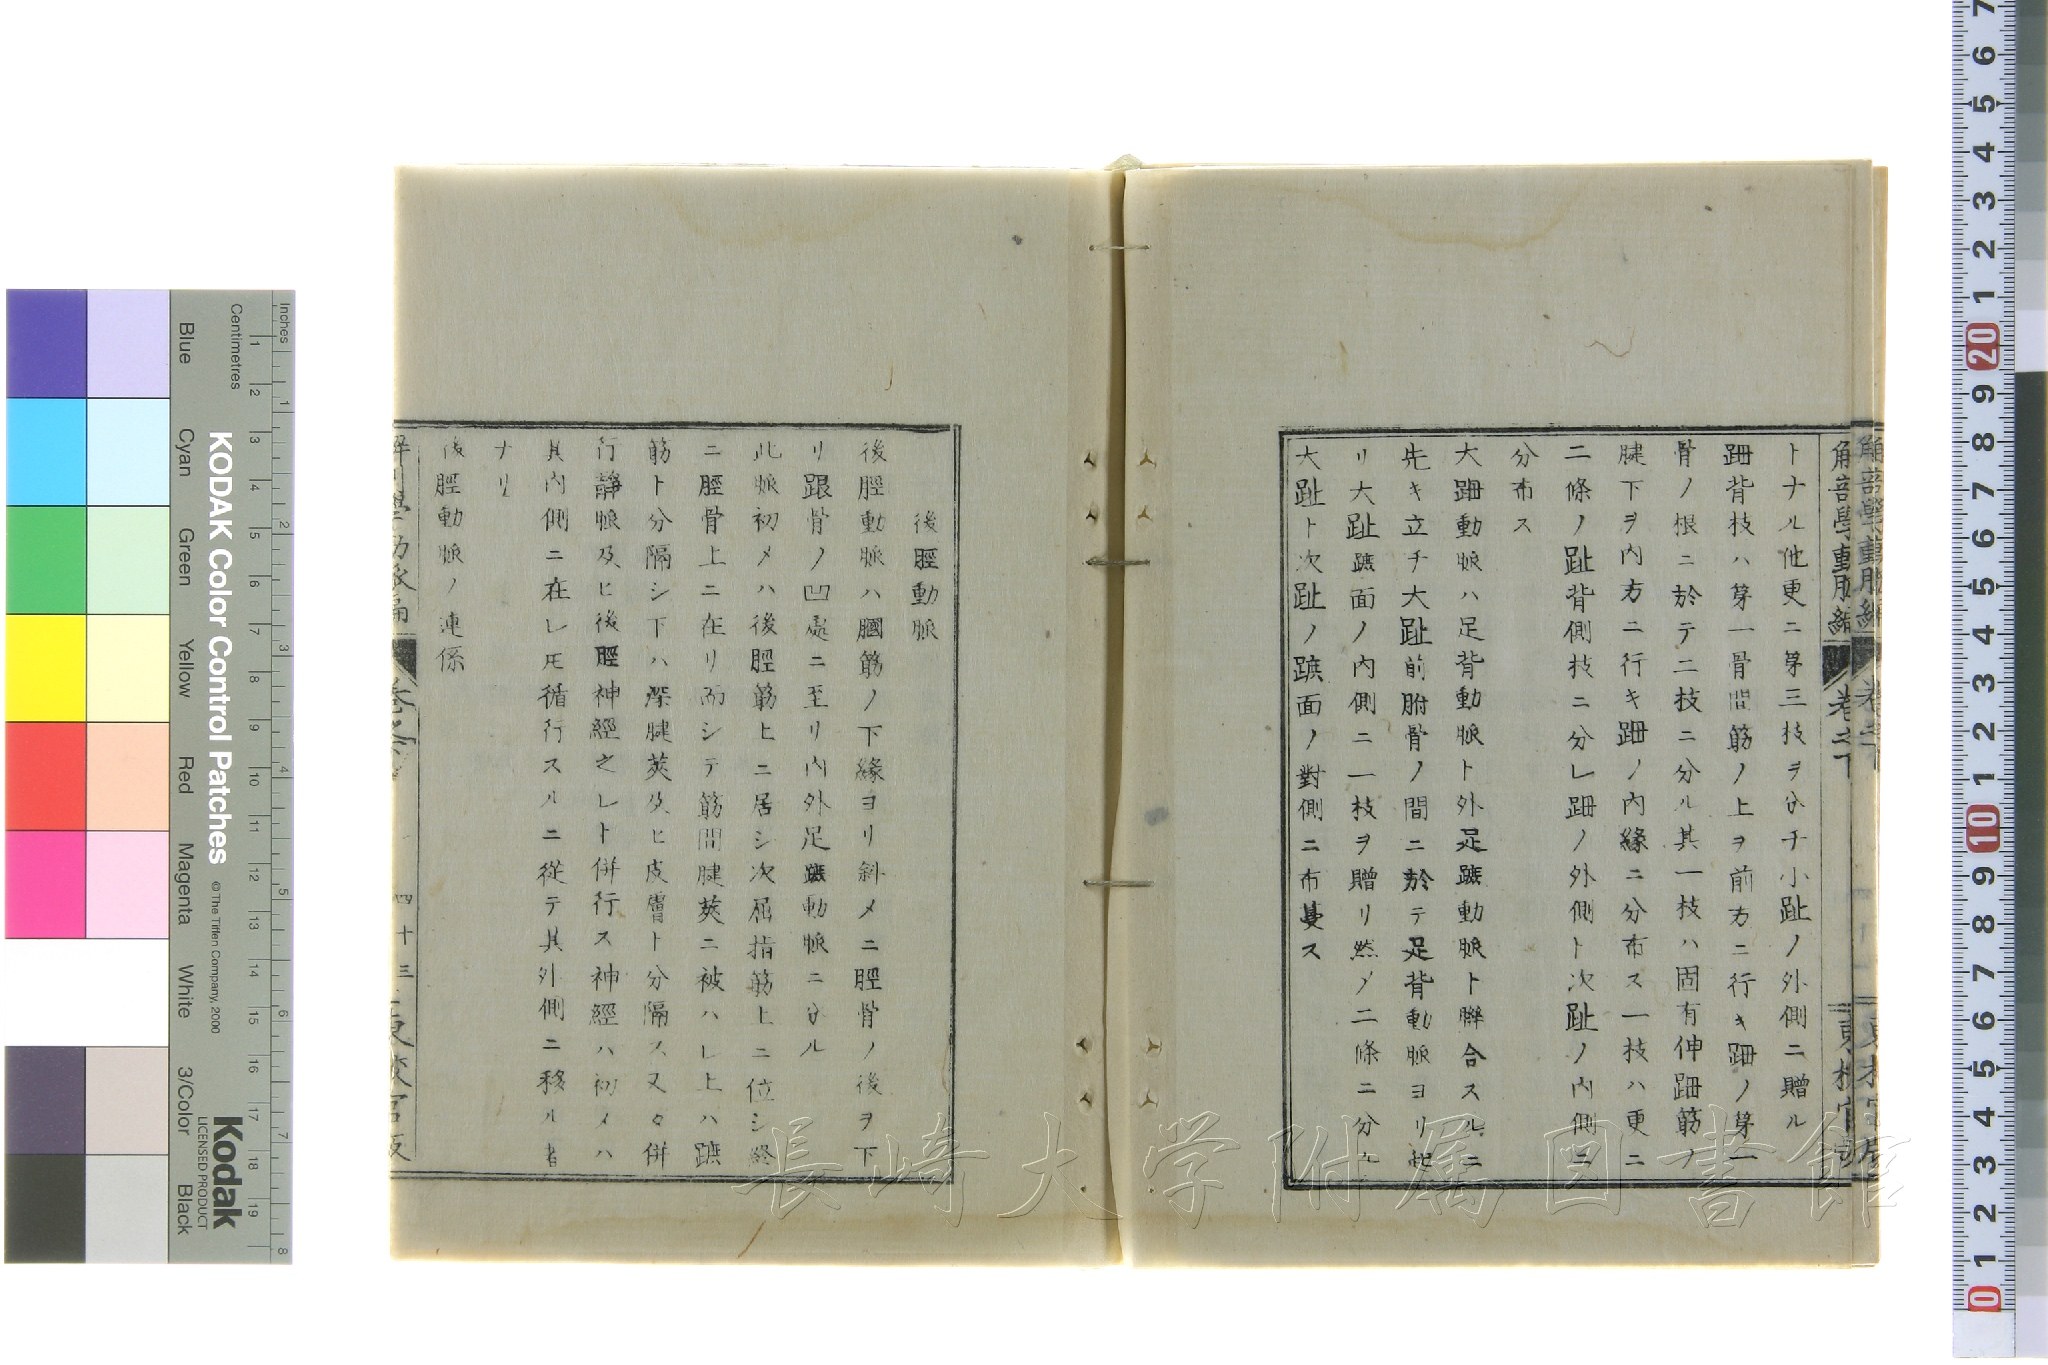 トナル他更ニ第三枝ヲ分チ小趾ノ外側ニ贈ル
跚背枝ハ第一骨間筋ノ上ヲ前方ニ行キ跚ノ第一
骨ノ根ニ於テ二枝ニ分ル其一枝ハ固有伸跚筋ノ
腱下ヲ内方ニ行キ跚ノ内縁ニ分布ス一枝ハ更ニ
二條ノ趾背側枝ニ分レ跚ノ外側ト次趾ノ内側ニ
分布ス
大跚動脈ハ足背動脈ト外足蹠動脈ト聯合スルニ
先キ立チ大趾前胕骨ノ間ニ於テ足背動脈ヨリ起
リ大趾蹠面ノ内側ニ一枝ヲ贈リ然ノ二條ニ分レ
大趾ト次趾ノ蹠面ノ對側ニ布蔓ス
後脛動脈
後脛動脈ハ膕筋ノ下緣ヨリ斜メニ脛骨ノ後ヲ下
リ跟骨ノ凹處ニ至リ内外足蹠動脈ニ分ル
此脈初メハ後脛筋上ニ居シ次屈指筋上ニ位シ終
ニ脛骨上ニ在リ而シテ筋間腱莢ニ被ハレ上ハ蹠
筋ト分隔シ下ハ深腱莢及ヒ皮膚ト分隔ス又々併
行靜脈及ヒ後脛神經之レト併行ス神經ハ初メハ
其内側ニ在レ𪜈循行スルニ從テ其外側ニ移ル者
ナリ
後脛動脈ノ連係
四十三
長崎大学附属図書館
KODAK Color Control Patches
© The Tiffen Company, 2000
Kodak
LICENSED PRODUCT
Inches
Centimetres
Blue
Cyan
Green
Yellow
Red
Magenta
White
3/Color
Black